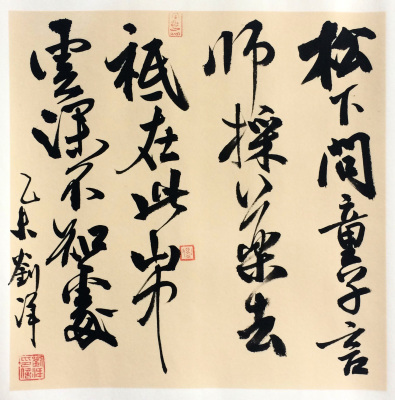 松下問童子言
師採藥去
祗在此山中
雲深不知處
乙未劉洋